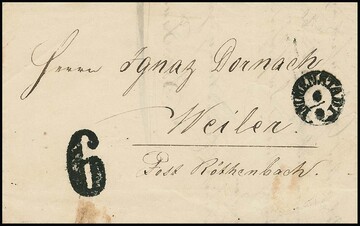 Herrn Ignaz Dornach
Weiler.
Post Röthenbach.
6
9